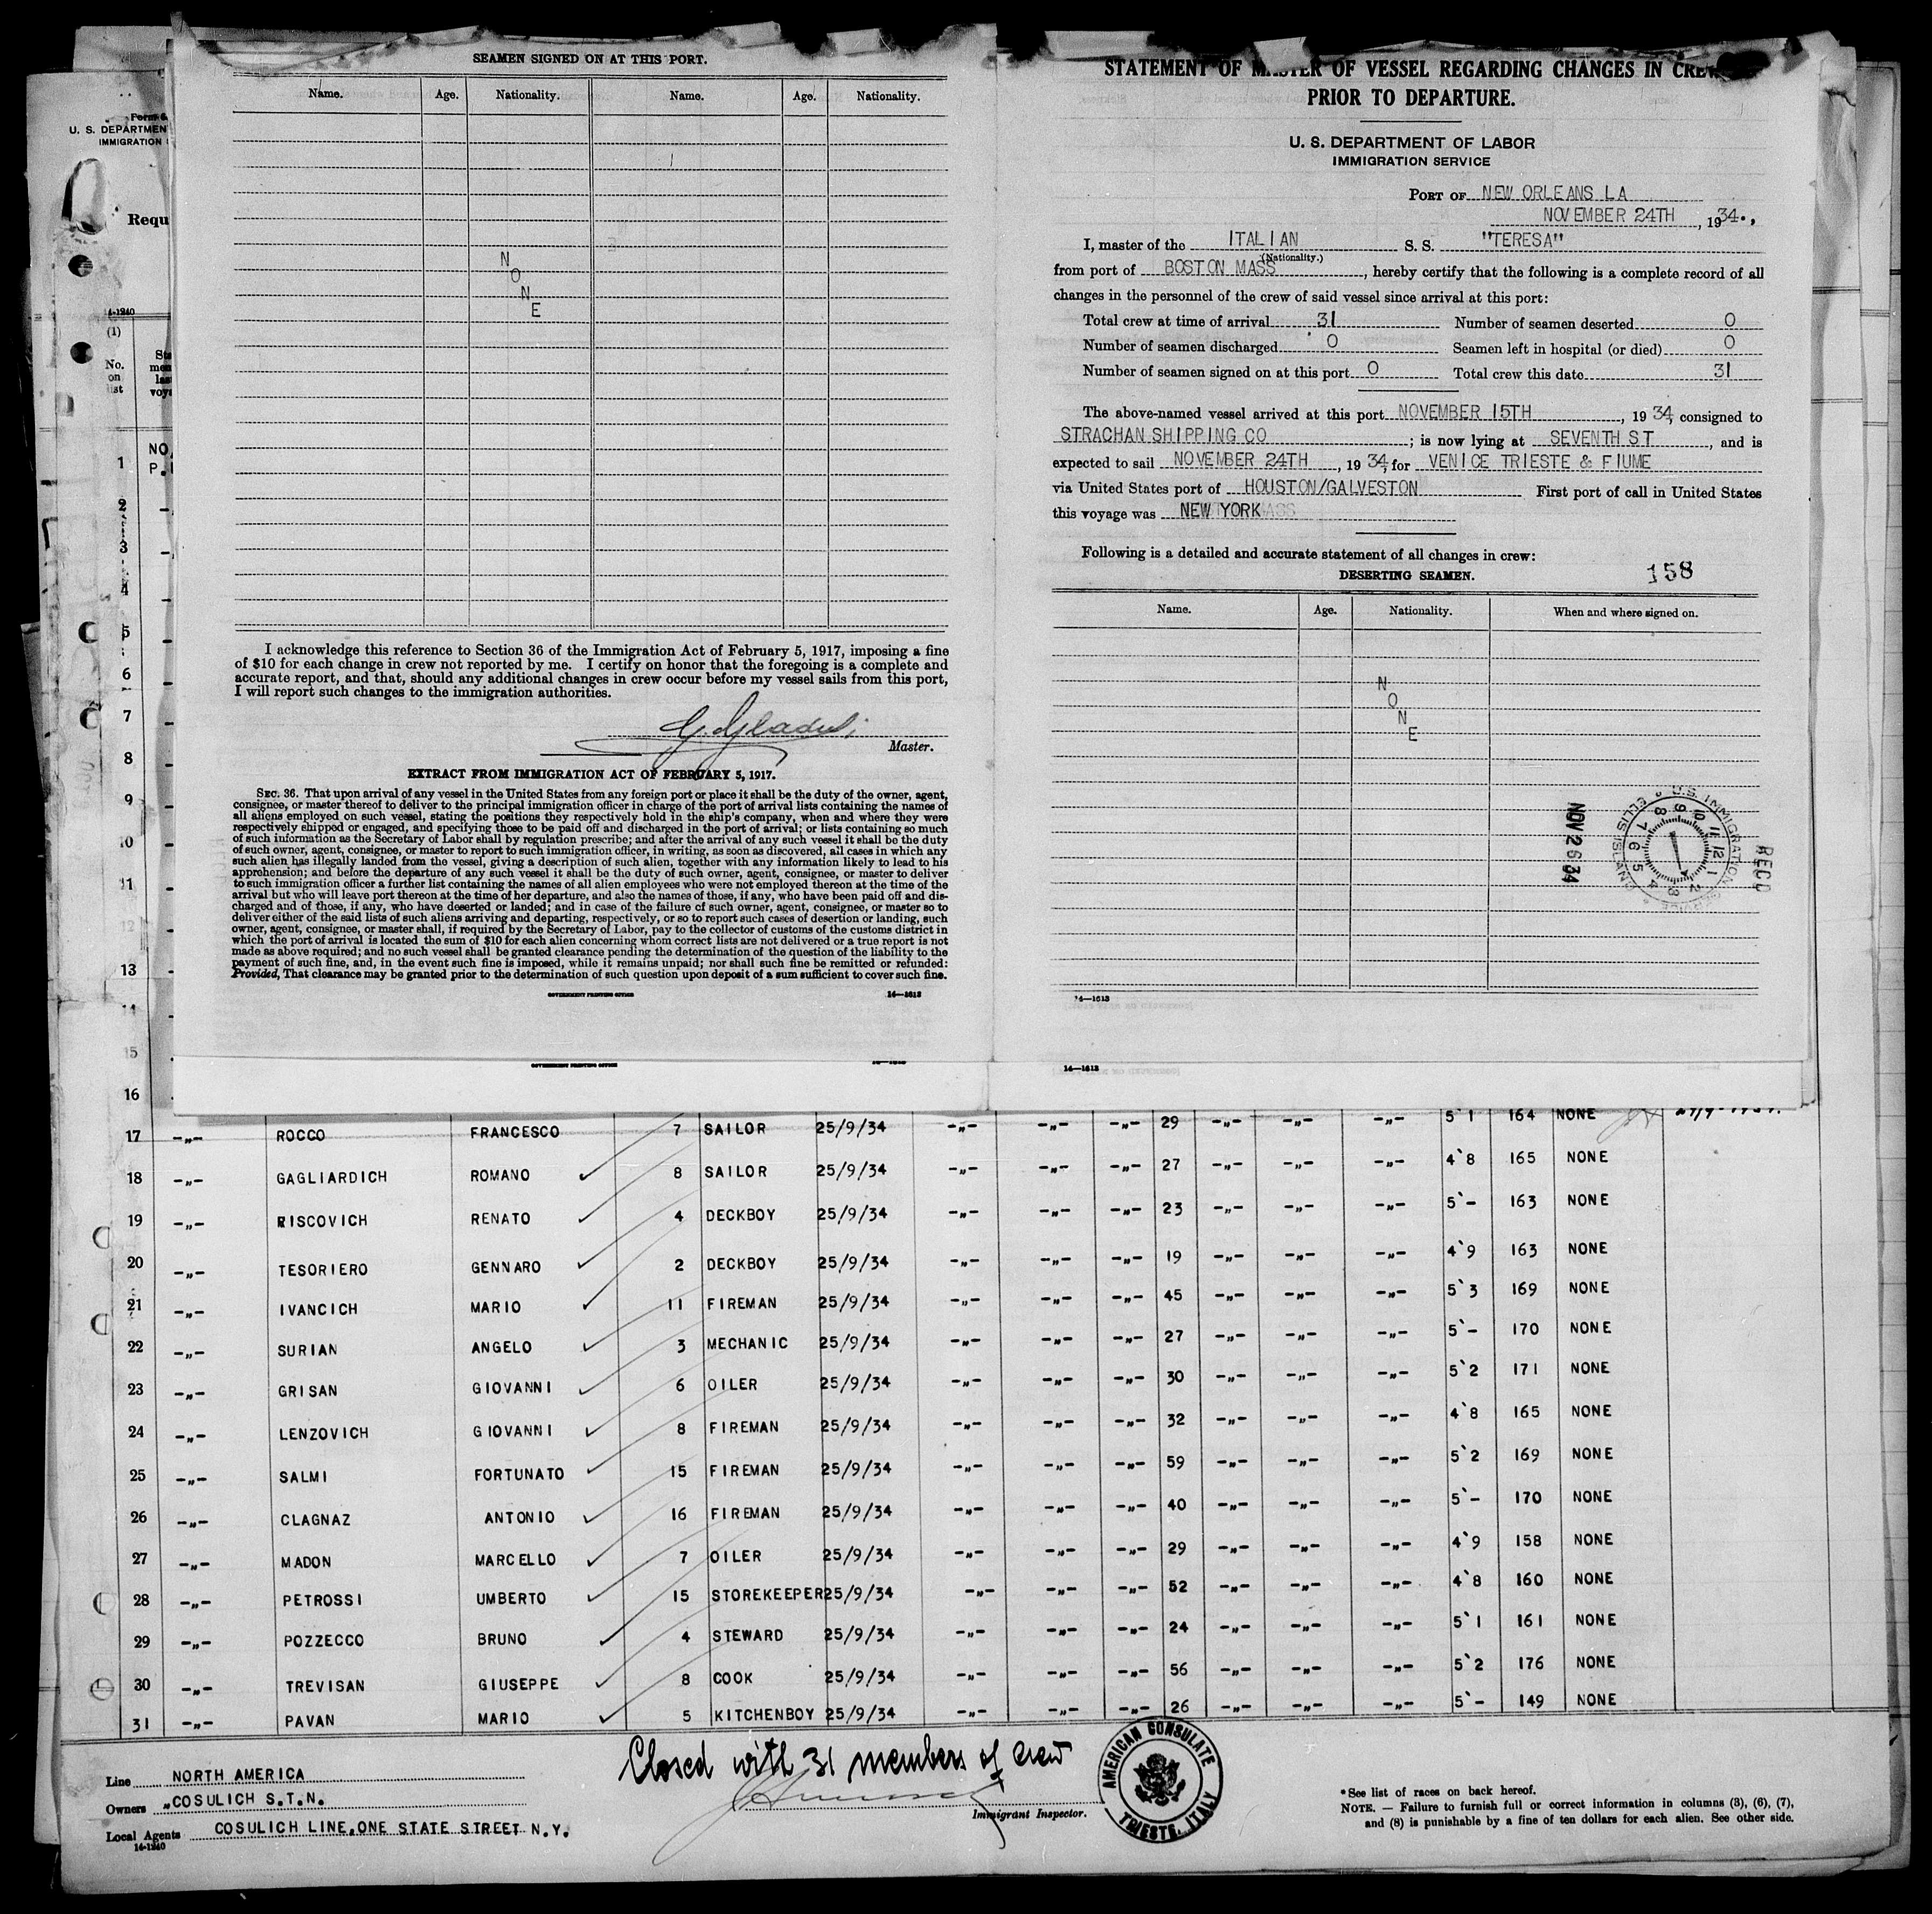 SEAMEN SIGNED ON AT THIS PORT.
Name. Age. Nationality. Name. Age. Nationality.
N
O
N
E
I acknowledge this reference to Section 36 of the Immigration Act of February 5, 1917, imposing a fine
of $10 for each change in crew not reported by me. I certify on honor that the foregoing is a complete and
accurate report, and that, should any additional changes in crew occur before my vessel sails from this port,
I will report such changes to the immigration authorities.
Master.
EXTRACT FROM IMMIGRATION ACT OF FEBRUARY 5, 1917.
SEC. 36. That upon arrival of any vessel in the United States from any foreign port or place it shall be the duty of the owner, agent,
consignee, or master thereof to deliver to the principal immigration officer in charge of the port of arrival lists containing the names of
all aliens employed on such vessel, stating the positions they respectively hold in the ship's company, when and where they were
respectively shipped or engaged, and specifying those to be paid off and discharged in the port of arrival; or lists containing so much
of such information as the Secretary of Labor shall by regulation prescribe; and after the arrival of any such vessel it shall be the duty
of such owner, agent, consignee, or master to report to such immigration officer, in writing, as soon as discovered, all cases in which any
such alien has illegally landed from the vessel, giving a description of such alien, together with any information likely to lead to his
apprehension; and before the departure of any such vessel it shall be the duty of such owner, agent, consignee, or master to deliver
to such immigration officer a further list containing the names of all alien employees who were not employed thereon at the time of the
arrival but who will leave port thereon at the time of her departure, and also the names of those, if any, who have been paid off and dis-
charged and of those, if any, who have deserted or landed; and in case of the failure of such owner, agent, consignee, or master so to
deliver either of the said lists of such aliens arriving and departing, respectively, or so to report such cases of desertion or landing, such
owner, agent, consignee, or master shall, if required by the Secretary of Labor, pay to the collector of customs of the customs district in
which the port of arrival is located the sum of $10 for each alien concerning whom correct lists are not delivered or a true report is not
made as above required; and no such vessel shall be granted clearance pending the determination of the question of the liability to the
payment of such fine, and, in the event such fine is imposed, while it remains unpaid; nor shall such fine be remitted or refunded:
Provided, That clearance may be granted prior to the determination of such question upon deposit of a sum sufficient to cover such fine.
GOVERNMENT PRINTING OFFICE 14—1613
GOVERNMENT PRINTING OFFICE
STATEMENT OF MASTER OF VESSEL REGARDING CHANGES IN CREW
PRIOR TO DEPARTURE.
U. S. DEPARTMENT OF LABOR
IMMIGRATION SERVICE
PORT OF NEW ORLEANS LA
NOVEMBER 24TH, 1934.,
I, master of the ITALIAN S. S. "TERESA"
(Nationality.)
from port of BOSTON MASS, hereby certify that the following is a complete record of all
changes in the personnel of the crew of said vessel since arrival at this port:
Total crew at time of arrival 31 Number of seamen deserted 0
Number of seamen discharged 0 Seamen left in hospital (or died) 0
Number of seamen signed on at this port 0 Total crew this date 31
The above-named vessel arrived at this port NOVEMBER 15TH, 1934, consigned to
STRACHAN SHIPPING CO; is now lying at SEVENTH ST, and is
expected to sail NOVEMBER 24TH, 1934, for VENICE TRIESTE & FIUME
via United States port of HOUSTON/GALVESTON First port of call in United States
this voyage was NEW YORK
Following is a detailed and accurate statement of all changes in crew:
DESERTING SEAMEN. 158
Name. Age. Nationality. When and where signed on.
N
O
N
E
NOV 26 34
U.S. IMMIGRATION SERVICE ELLIS ISLAND
1 2 3 4 5 6 7 8 9 10 11 12
RECD
14—1613
14—1613
U. S. DEPARTMEN
IMMIGRATION
Requ
14-1240
(1)
No.
on
list
NO
P.
1
2
3
4
5
6
7
8
9
10
11
12
13
14
15
16 5`1 164 NONE
17 -„- ROCCO FRANCESCO 7 SAILOR 25/9/34 -„- -„- -„- 29 -„- -„- -„-
18 -„- GAGLIARDICH ROMANO ✓ 8 SAILOR 25/9/34 -„- -„- -„- 27 -„- -„- -„- 4`8 165 NONE
19 -„- RISCOVICH RENATO ✓ 4 DECKBOY 25/9/34 -„- -„- -„- 23 -„- -„- -„- 5`- 163 NONE
20 -„- TESORIERO GENNARO ✓ 2 DECKBOY 25/9/34 -„- -„- -„- 19 -„- -„- -„- 4`9 163 NONE
21 -„- IVANCICH MARIO ✓ 11 FIREMAN 25/9/34 -„- -„- -„- 45 -„- -„- -„- 5`3 169 NONE
22 -„- SURIAN ANGELO ✓ 3 MECHANIC 25/9/34 -„- -„- -„- 27 -„- -„- -„- 5`- 170 NONE
23 -„- GRISAN GIOVANNI ✓ 6 OILER 25/9/34 -„- -„- -„- 30 -„- -„- -„- 5`2 171 NONE
24 -„- LENZOVICH GIOVANNI ✓ 8 FIREMAN 25/9/34 -„- -„- -„- 32 -„- -„- -„- 4`8 165 NONE
25 -„- SALMI FORTUNATO ✓ 15 FIREMAN 25/9/34 -„- -„- -„- 59 -„- -„- -„- 5`2 169 NONE
26 -„- CLAGNAZ ANTONIO ✓ 16 FIREMAN 25/9/34 -„- -„- -„- 40 -„- -„- -„- 5`- 170 NONE
27 -„- MADON MARCELLO ✓ 7 OILER 25/9/34 -„- -„- -„- 29 -„- -„- -„- 4`9 158 NONE
28 -„- PETROSSI UMBERTO ✓ 15 STOREKEEPER 25/9/34 -„- -„- -„- 52 -„- -„- -„- 4`8 160 NONE
29 -„- POZZECCO BRUNO ✓ 4 STEWARD 25/9/34 -„- -„- -„- 24 -„- -„- -„- 5`1 161 NONE
30 -„- TREVISAN GIUSEPPE ✓ 8 COOK 25/9/34 -„- -„- -„- 56 -„- -„- -„- 5`2 176 NONE
31 -„- PAVAN MARIO ✓ 5 KITCHENBOY 25/9/34 -„- -„- -„- 26 -„- -„- -„- 5`- 149 NONE
Closed with 31 members of crew
Line NORTH AMERICA
Owners COSULICH S.T.N.
Local Agents COSULICH LINE, ONE STATE STREET N.Y.
14-1240
Immigrant Inspector.
AMERICAN CONSULATE
TRIESTE, ITALY
* See list of races on back hereof.
NOTE. — Failure to furnish full or correct information in columns (3), (6), (7),
and (8) is punishable by a fine of ten dollars for each alien. See other side.